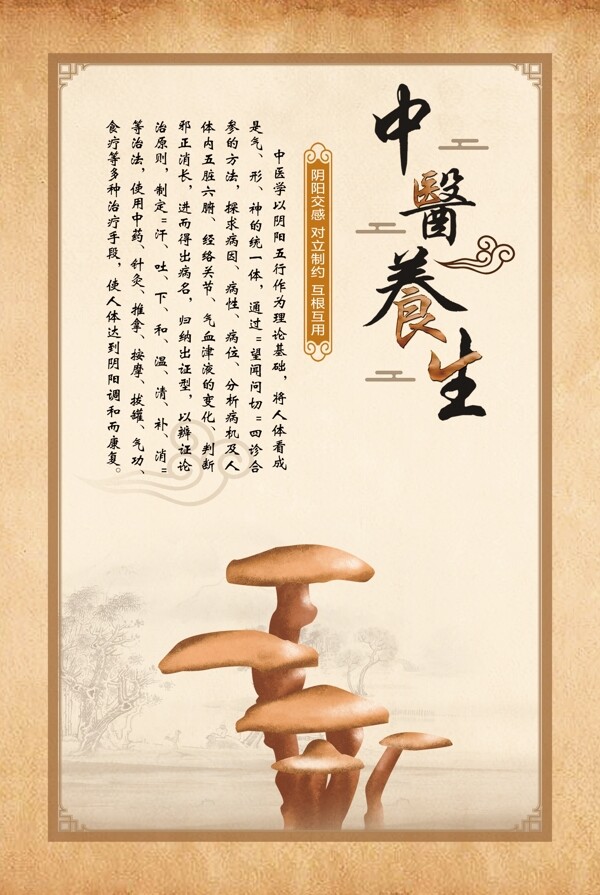 中醫養生
阴阳交感 对立制约 互根互用
中医学以阴阳五行作为理论基础，将人体看成
是气、形、神的统一体，通过"望闻问切"四诊合
参的方法，探求病因、病性、病位、分析病机及人
体内五脏六腑、经络关节、气血津液的变化、判断
邪正消长，进而得出病名，归纳出证型，以辨证论
治原则，制定"汗、吐、下、和、温、清、补、消"
等治法，使用中药、针灸、推拿、按摩、拔罐、气功、
食疗等多种治疗手段，使人体达到阴阳调和而康复。